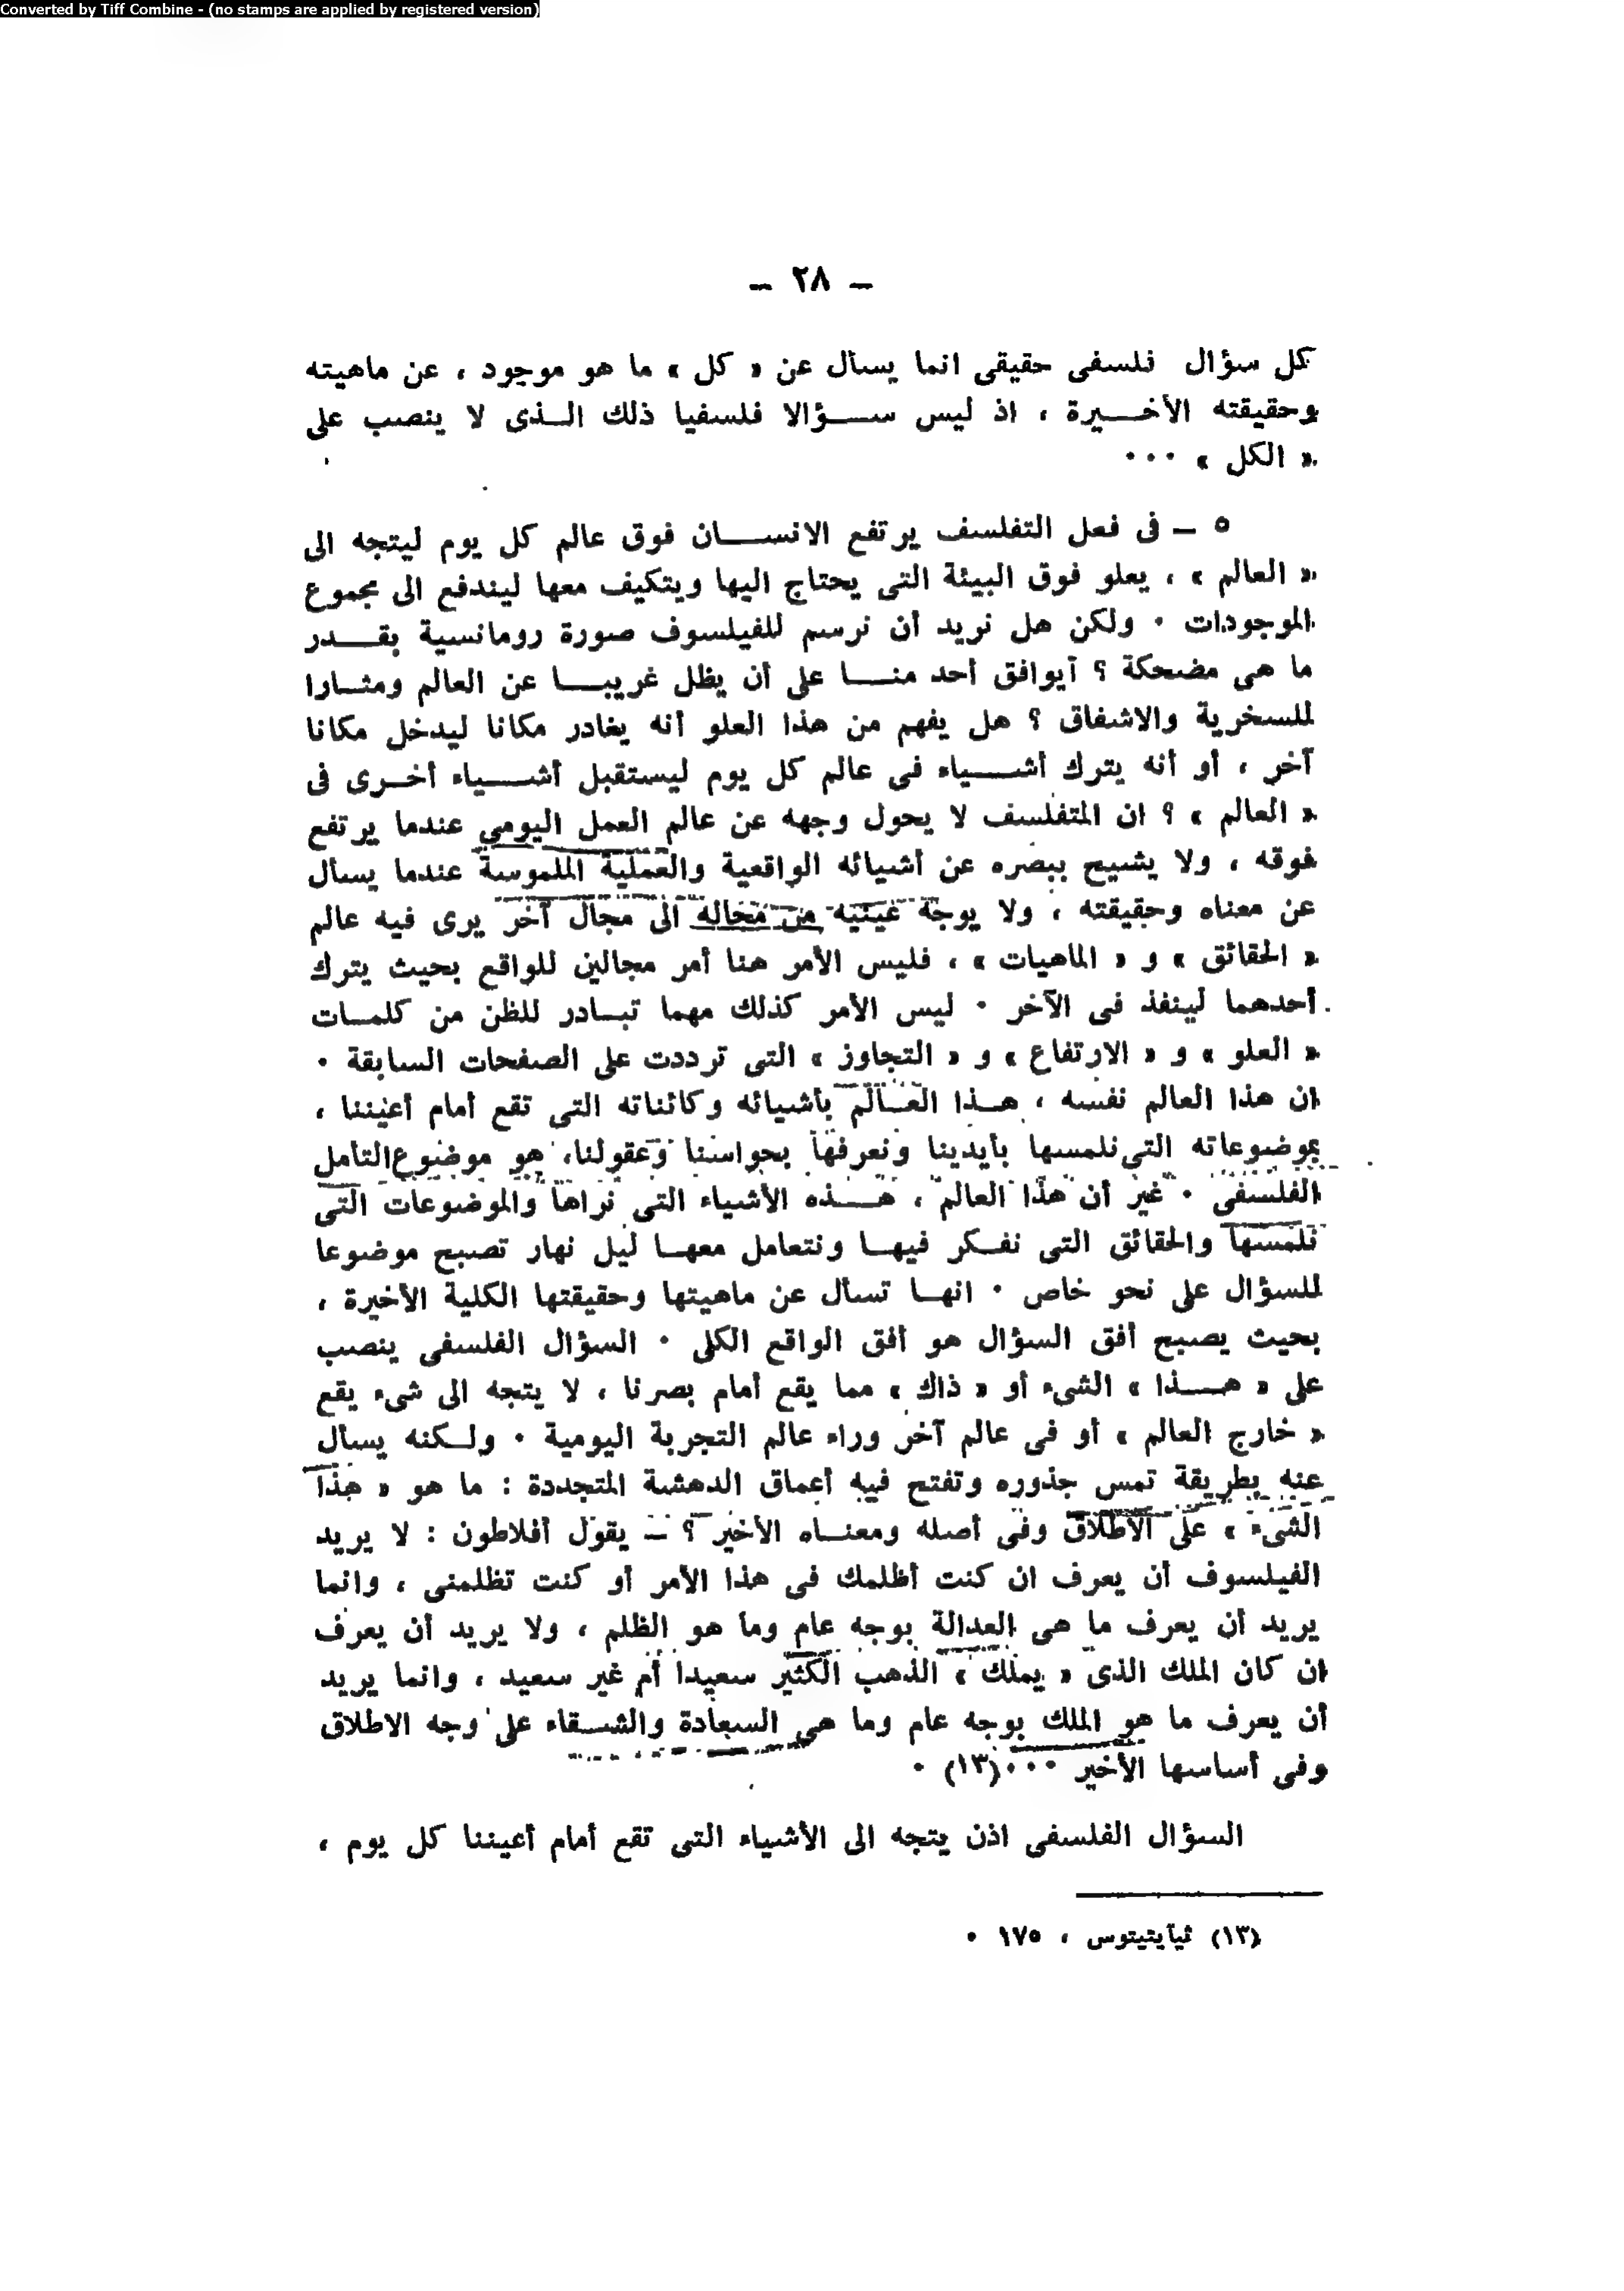 Converted by Tiff Combine - (no stamps are applied by registered version)
— ٢٨ —
كل سؤال فلسفى حقيقى انما يسأل عن « كل » ما هو موجود ، عن ماهيته
وحقيقته الأخيرة ، اذ ليس سؤالا فلسفيا ذلك الذى لا ينصب على
« الكل » ٠٠٠
٥ — فى فعل التفلسف يرتفع الانسان فوق عالم كل يوم ليتجه الى
« العالم » ، يعلو فوق البيئة التى يحتاج اليها ويتكيف معها ليندفع الى مجموع
الموجودات ٠ ولكن هل نريد أن نرسم للفيلسوف صورة رومانسية بقدر
ما هى مضحكة ؟ أيوافق أحد منا على أن يظل غريبا عن العالم ومثارا
للسخرية والاشفاق ؟ هل يفهم من هذا العلو أنه يغادر مكانا ليدخل مكانا
آخر ، أو أنه يترك أشياء فى عالم كل يوم ليستقبل أشياء أخرى فى
« العالم » ؟ ان المتفلسف لا يحول وجهه عن عالم العمل اليومي عندما يرتفع
فوقه ، ولا يشيح ببصره عن أشيائه الواقعية والعملية الملموسة عندما يسأل
عن معناه وحقيقته ، ولا يوجه عينيه من مجاله الى مجال آخر يرى فيه عالم
« الحقائق » و « الماهيات » ، فليس الأمر هنا أمر مجالين للواقع بحيث يترك
أحدهما لينفذ فى الآخر ٠ ليس الأمر كذلك مهما تبادر للظن من كلمات
« العلو » و « الارتفاع » و « التجاوز » التى ترددت على الصفحات السابقة ٠
ان هذا العالم نفسه ، هذا العالم بأشيائه وكائناته التى تقع أمام أعيننا ،
بموضوعاته التى نلمسها بأيدينا ونعرفها بحواسنا وعقولنا، هو موضوع التأمل
الفلسفى ٠ غير أن هذا العالم ، هذه الأشياء التى نراها والموضوعات التى
نلمسها والحقائق التى نفكر فيها ونتعامل معها ليل نهار تصبح موضوعا
للسؤال على نحو خاص ٠ انها تسأل عن ماهيتها وحقيقتها الكلية الأخيرة ،
بحيث يصبح أفق السؤال هو أفق الواقع الكلى ٠ السؤال الفلسفى ينصب
على « هذا » الشىء أو « ذاك » مما يقع أمام بصرنا ، لا يتجه الى شىء يقع
« خارج العالم » أو فى عالم آخر وراء عالم التجربة اليومية ٠ ولكنه يسأل
عنه بطريقة تمس جذوره وتفتح فيه أعماق الدهشة المتجددة : ما هو « هذا
الشىء » على الاطلاق وفى أصله ومعناه الأخير ؟ — يقول أفلاطون : لا يريد
الفيلسوف أن يعرف ان كنت أظلمك فى هذا الأمر أو كنت تظلمنى ، وانما
يريد أن يعرف ما هى العدالة بوجه عام وما هو الظلم ، ولا يريد أن يعرف
ان كان الملك الذى « يملك » الذهب الكثير سعيدا أم غير سعيد ، وانما يريد
أن يعرف ما هو الملك بوجه عام وما هى السعادة والشقاء على وجه الاطلاق
وفى أساسها الأخير ٠٠٠(١٣) ٠
السؤال الفلسفى اذن يتجه الى الأشياء التى تقع أمام أعيننا كل يوم ،
(١٣) ثيآيتيتوس ، ١٧٥ ٠